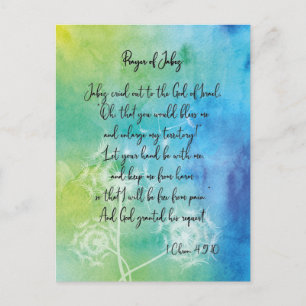 Prayer of Jabez
Jabez cried out to the God of Israel,
"Oh that you would bless me
and enlarge my territory!
Let your hand be with me,
and keep me from harm
so that I will be free from pain.
And God granted his request.
1 Chron. 4:9-10